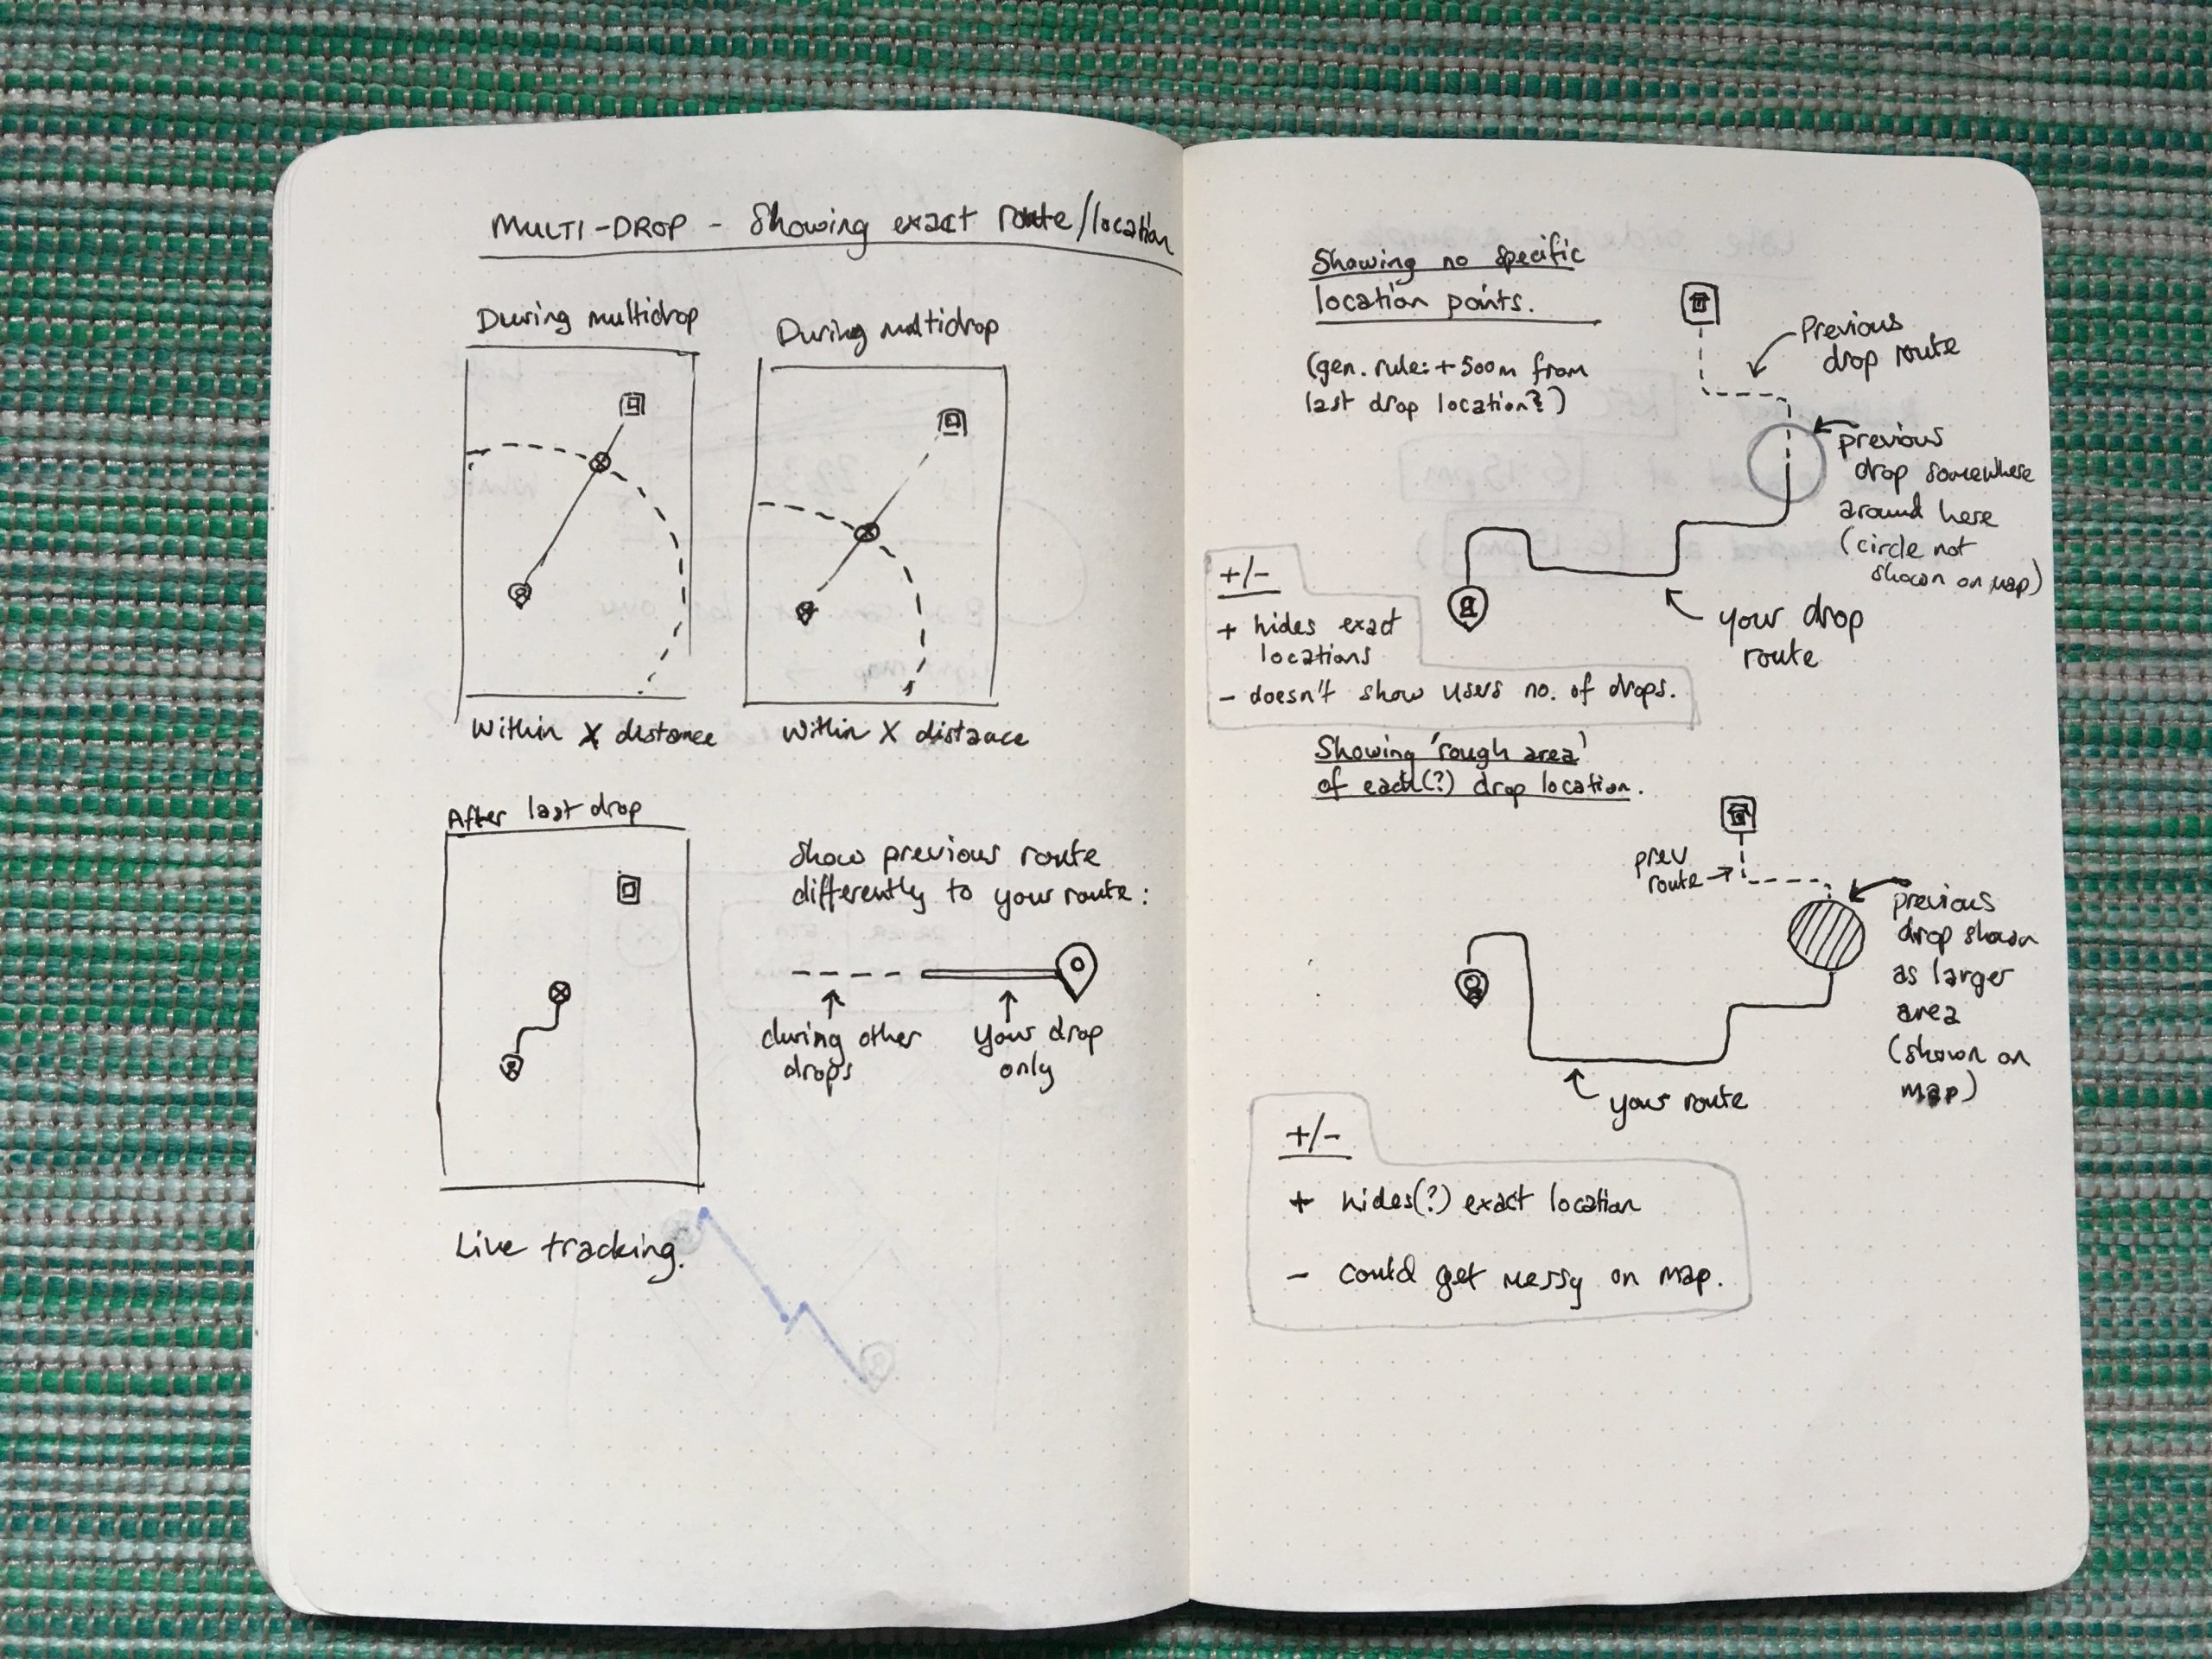 MULTI-DROP - Showing exact route/location
During multidrop
During multidrop
Within X distance
Within X distance
After last drop
Live tracking.
Show previous route
differently to your route:
during other
drops
your drop
only
Showing no specific
location points.
(gen. rule: +500m from
last drop location?)
Previous
drop route
previous
drop somewhere
around here
(circle not
shown on map)
your drop
route
+/-
+ hides exact
locations
- doesn't show users no. of drops.
Showing 'rough area'
of each(?) drop location.
prev
route
previous
drop shown
as larger
area
(shown on
map)
your route
+/-
+ hides(?) exact location
- could get messy on map.